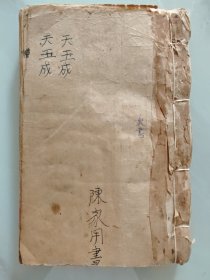 天五成
天五成
陳家用書